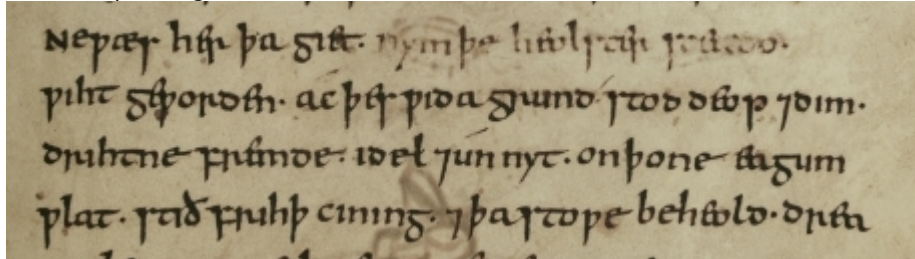 Neƿær her þa giet · nymþe heolstersceado ·
ƿiht geƿorden · ac þes ƿida grund stod deop ⁊ dim ·
drihtne fremde · idel ⁊ unnyt · on þone eagum
ƿlat · stiðfrihþ cining · ⁊ þa stoƿe beheold · drea